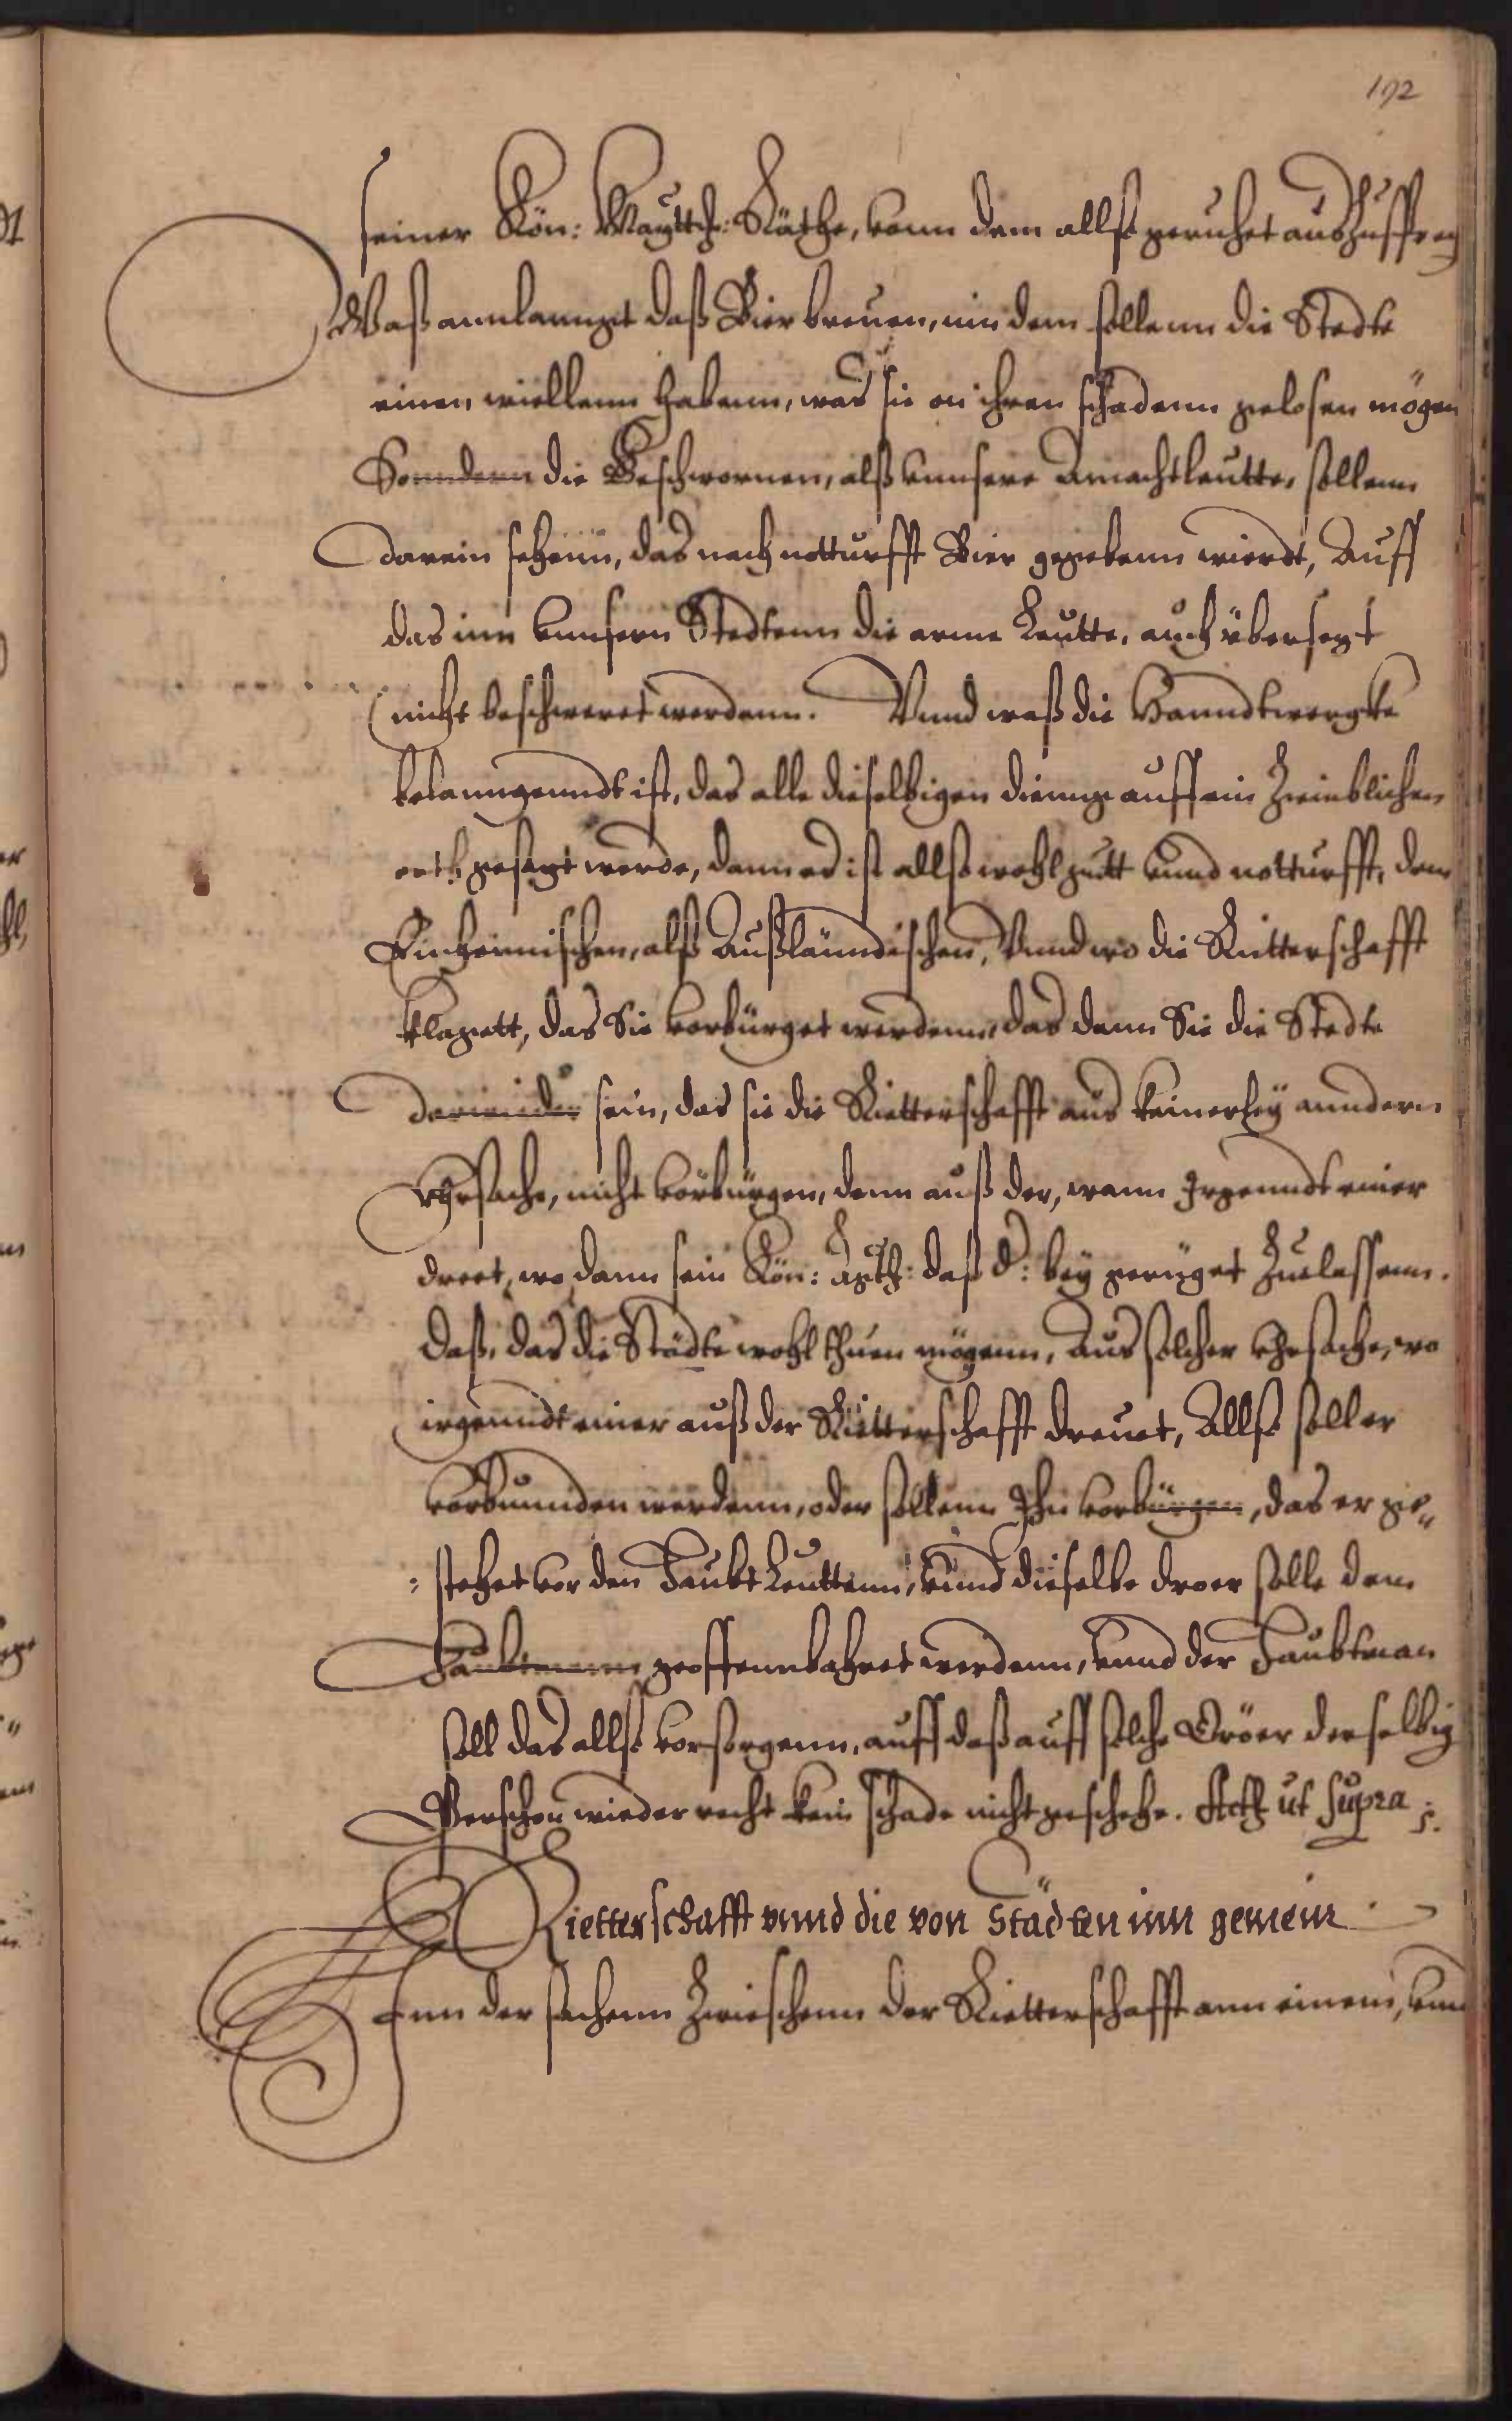 192
seiner Kön: Maytth: Räthe, vonn dem allß geruhet
Waß annlannget daß Bier breuen, inn dem sollenn die Stedte
einen wiellenn habenn, was sie on ihren schadenn gelosen mögen
Sonndern die Geschwornen, alß vunsere Amachtleutte, sollenn
darein sehenn, das nach notturfft Bier gegebenn wierdt, Auff
das inn vunsern Stedtenn die arme Leutte, auch übersezt
nicht beschweret werdenn. Vnnd waß die Hanndtwergke
belanngenndt ist, das alle dieselbigen dienge auff ein Ziemblichen
orth gesezt werde, dann es ist allß wohl gutt vnnd notturfft, dem
Einheimischen, alß Außläundischen, Vnnd wo die Rütterschafft
klagett, das Sie vorbürget werdenn, das dann Sie die Stedte
darwieder sein, das sie die Rietterschafft aus keinerley anndern
Vhrsache, nicht vorbürgen, denn auß der, wann Irgenndt einer
dreet, wo dann sein Kön: daß bey geruget Zuelassenn.
Daß, das die Städte wohl thuen mögenn, Aus solcher Vhrsache, wo
irgenndt einer auß der Rütterschafft dreuet, Allß soll er
vorbunnden werdenn, oder sollenn Ihn vorbürgen, das er gie„
: stehet vor den Haubt Leuttenn, vnnd dieselbe droer solle dem
Haubtmann geoffennbahret werdenn, vnnd der Haubtman
soll das allß vorsorgenn, auff daß auff solche Dröer derselbig
Perschon wieder recht kein schade nicht geschehe. Acth ut supra
Rietterschafft vnnd die von Städten inn gemein
Inn der sachenn Zwieschenn der Rietterschafft ann einem, vnn